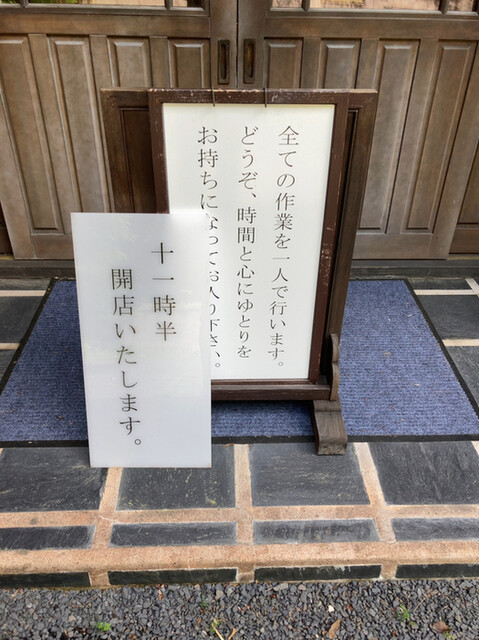 全ての作業を一人で行います。
どうぞ、時間と心にゆとりを
お持ちになってお入り下さい。
十一時半
開店いたします。